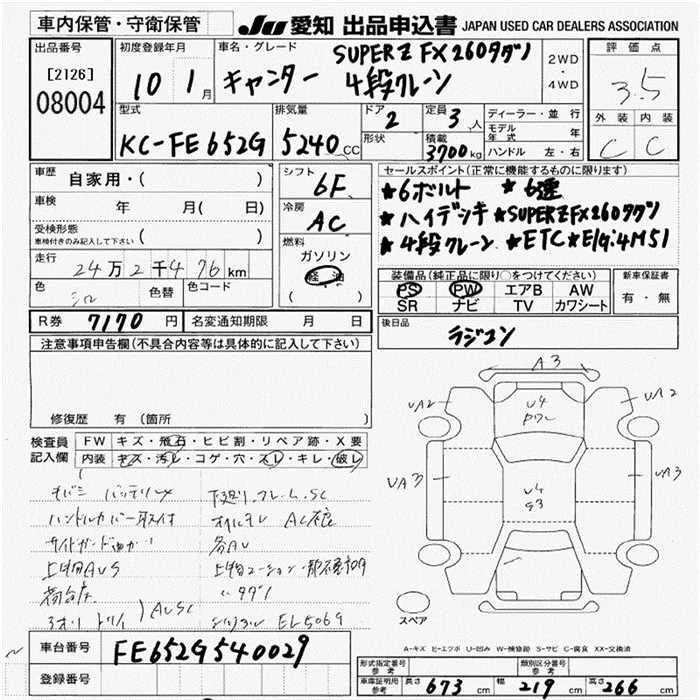 車内保管・守衛保管
JU 愛知 出品申込書 JAPAN USED CAR DEALERS ASSOCIATION
出品番号
[2126]
08004
初度登録年月
10 1月
車名・グレード
SUPER Z FX260ダダン
キャンター 4段クレーン
2WD
・
4WD
評価点
3.5
外装 内装
C C
型式
KC-FE652G
排気量
5240 CC
ドア
2
形状
定員
3人
積載
3700kg
ディーラー・並行
モデル年式 年
ハンドル 左・右
車歴
自家用・( )
車検
年 月( 日)
受検形態
車検付きのみ記入して下さい ( )
走行
24万2千476km
色
シロ
色替
色コード
シフト
6F
冷房
AC
燃料
ガソリン
軽油
( )
セールスポイント(正常に機能するものに限ります)
★6ボルト ★6速
★ハイデッキ★SUPERZFX260ダダン
★4段クレーン ★ETC★E/g:4M51
装備品(純正品に限り○をつけてください)
PS PW エアB AW
SR ナビ TV カワシート
新車保証書
有・無
R券 7170円
名変通知期限 月 日
後日品
ラジコン
注意事項申告欄(不具合内容等は具体的に記入して下さい)
修復歴 有 (箇所 )
検査員記入欄
FW キズ・飛石・ヒビ割・リペア跡・X要
内装 キズ・汚レ・コゲ・穴・スレ・キレ・破レ
バッテリー
下廻リフレームSC
ハンドルカバー取付
オイルモレ AC
サイドガード曲がり
各AU
上物AUS
荷台
AUSC
EL506G
A3
UA2
U4
UA2
UA3
U4
S3
UA3
スペア
A-キズ E-エクボ U-凹み W-補修跡 S-サビ C-腐食 XX-交換済
車台番号
FE652G540029
登録番号
形式指定番号 参考
類別区分番号 参考
車庫証明用 参考
長さ 673 cm 幅 219 cm 高さ 266 cm